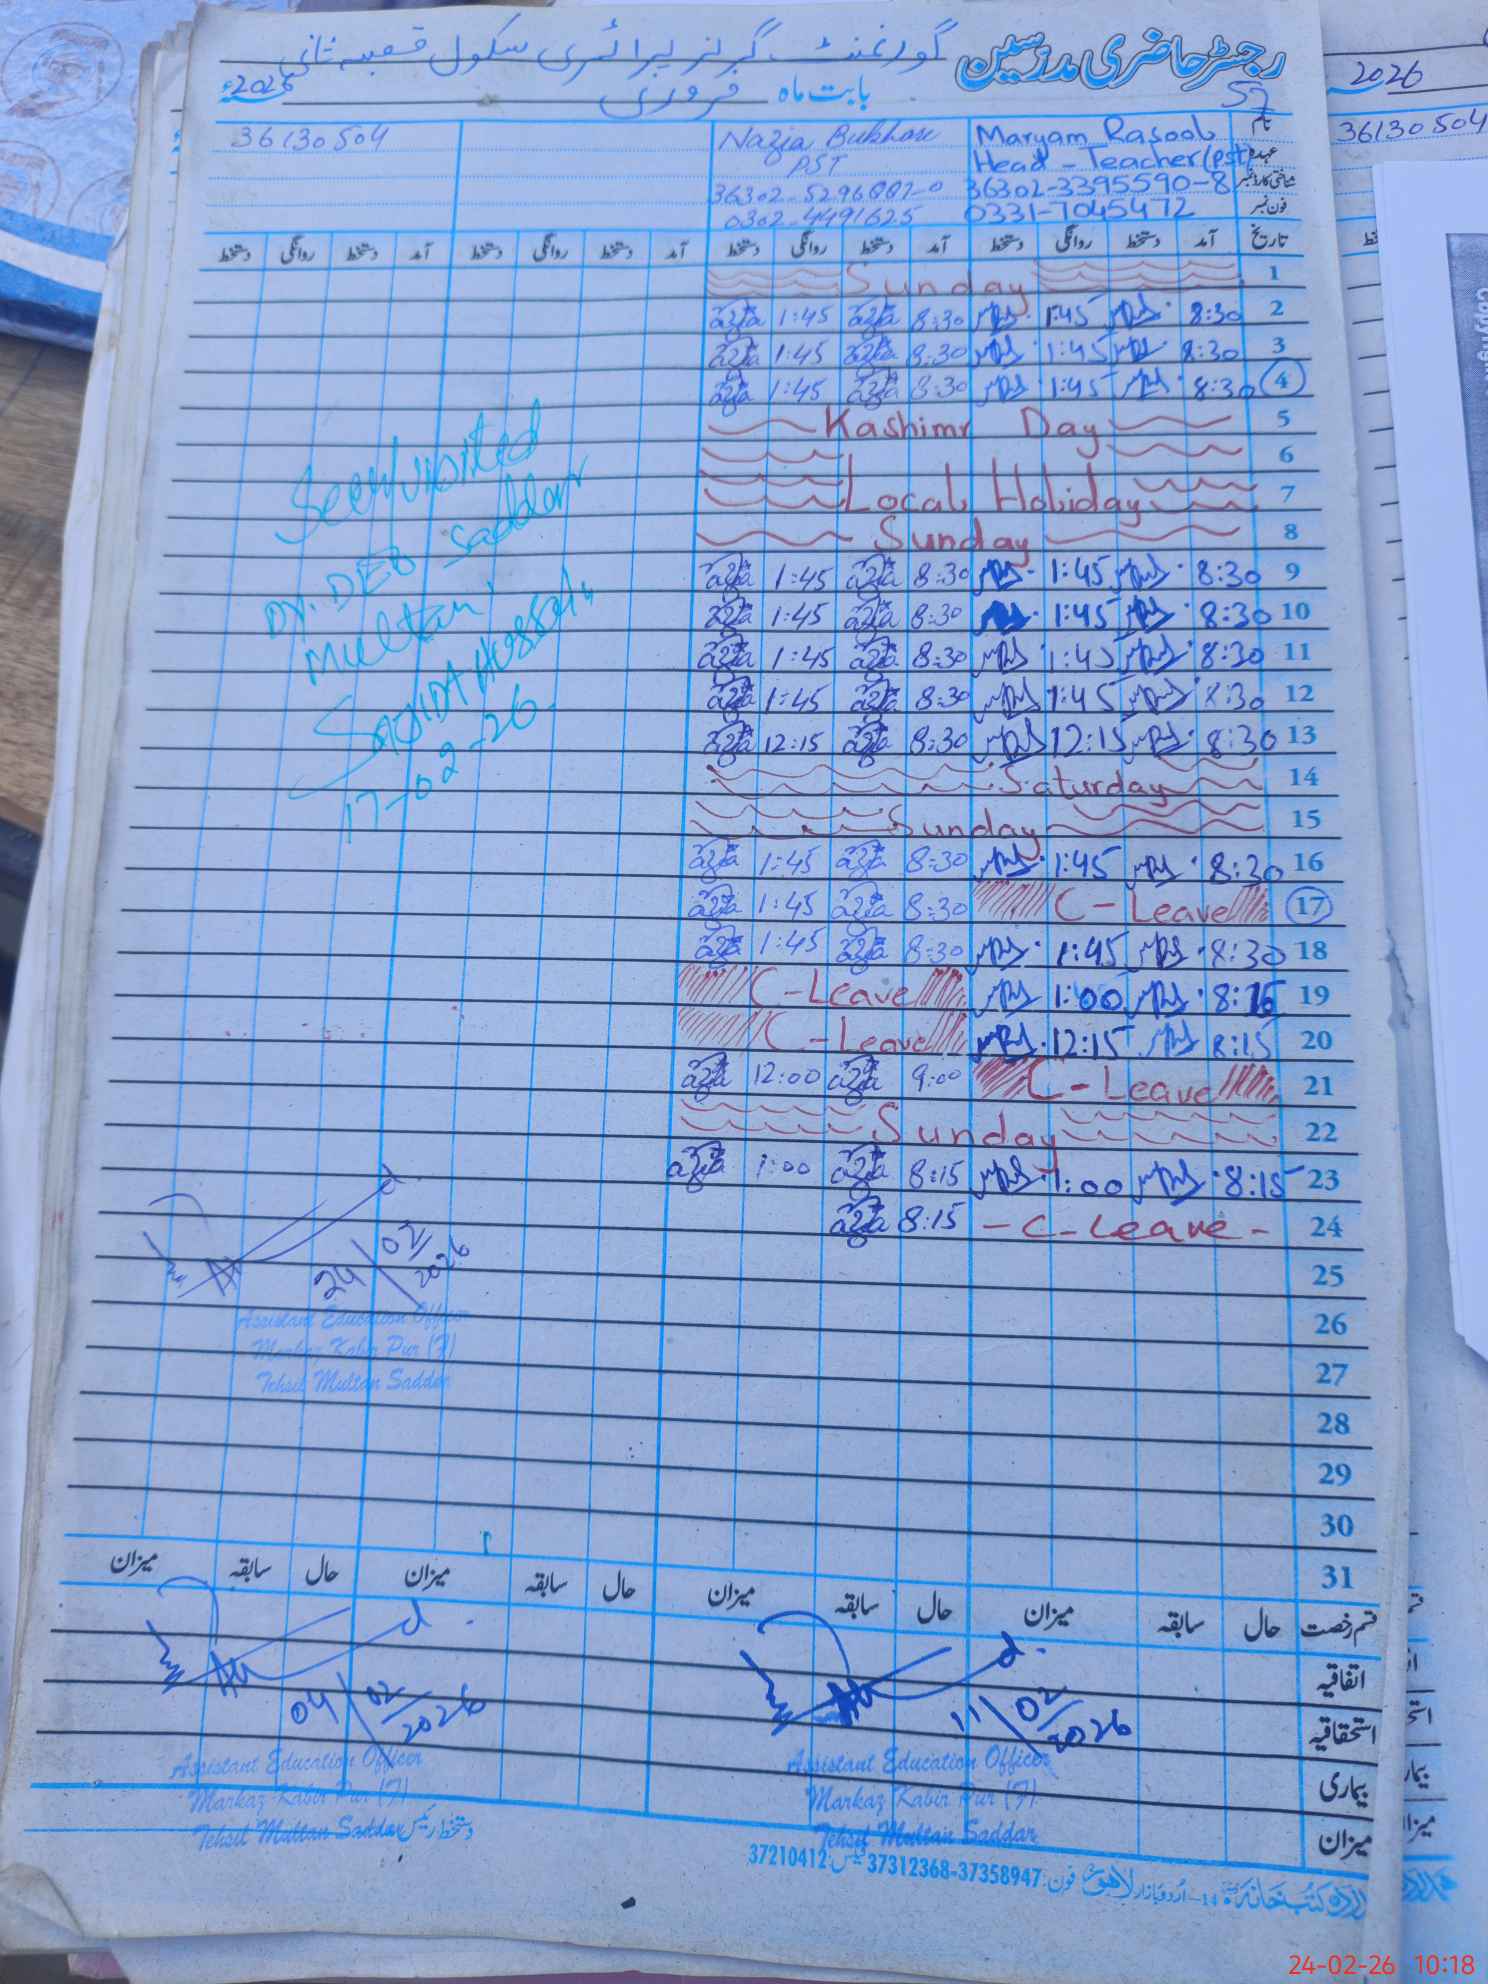 رجسٹر حاضری مدرسین گورنمنٹ گرلز پرائمری سکول قصبہ ثانی
57
بابت ماہ فروری 2026ء
2026
نام Maryam Rasool Nazia Bukhari 36130504
36130504
عہدہ Head-Teacher(pst) PST
شناختی کارڈ نمبر 36302-3395590-8
فون نمبر 0331-7045472 0302-4491625
تاریخ آمد دستخط روانگی دستخط آمد دستخط روانگی دستخط آمد دستخط روانگی دستخط آمد دستخط روانگی دستخط
1 Sunday
2 8:30 1:45 8:30 1:45
3 8:30 1:45 8:30 1:45
4 8:30 1:45 8:30 1:45
5 Kashimr Day
6
7 Local Holiday
8 Sunday
9 8:30 1:45 8:30 1:45
10 8:30 1:45 8:30 1:45
11 8:30 1:45 8:30 1:45
12 8:30 1:45 8:30 1:45
13 8:30 12:15 8:30 12:15
14 Saturday
15 Sunday
16 8:30 1:45 8:30 1:45
17 C-Leave 8:30 1:45
18 8:30 1:45 8:30 1:45
19 8:15 1:00 C-Leave
20 8:15 12:15 C-Leave
21 C-Leave 9:00 12:00
22 Sunday
23 8:15 1:00 8:15 1:00
24 -C-Leave- 8:15
25
26
27
28
29
30
31
Seen/visited
Dy. DEO Saddar
Multan
SAJIDA HUSSAIN
17-02-26
24/02/2026
Assistant Education Officer
Markaz Kabir Pur (F)
Tehsil Multan Saddar
قسم رخصت حال سابقہ میزان حال سابقہ میزان حال سابقہ میزان حال سابقہ میزان
اتفاقیہ
استحقاقیہ
بیماری
میزان
11/02/2026
Assistant Education Officer
Markaz Kabir Pur (F)
Tehsil Multan Saddar
04/02/2026
Assistant Education Officer
Markaz Kabir Pur (F)
Tehsil Multan Saddar
دستخط رئیس
14-اردو بازار لاہور فون: 37312368-37358947 فیکس: 37210412
24-02-26 10:18